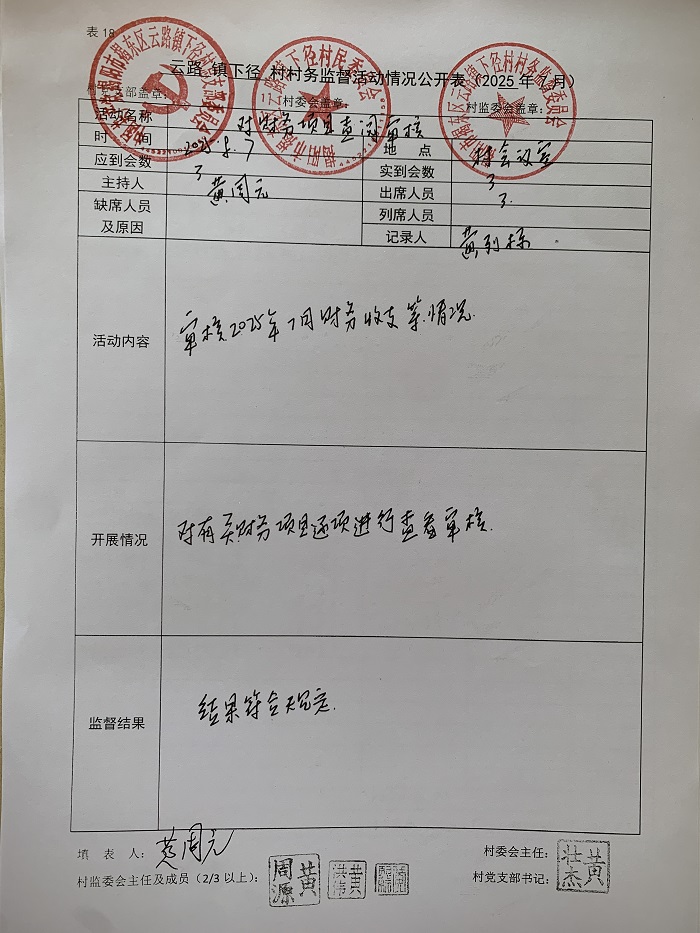 表 18
云路 镇下径 村村务监督活动情况公开表（2025 年 月）
村支部盖章： 村委会盖章： 村监委会盖章：
活动名称 对财务项目查阅审核
时 间 2025.8.7 地 点 村会议室
应到会数 3 实到会数 3
主持人 黄周元 出席人员 3.
缺席人员 列席人员
及原因 记录人 黄
活动内容 审核2025年7月财务收支等情况.
开展情况 对有关财务项目逐项进行查看审核.
监督结果 结果符合规定.
填 表 人： 黄周元 村委会主任：
村监委会主任及成员（2/3 以上）： 黄周源 黄洪伟 村党支部书记： 黄壮杰